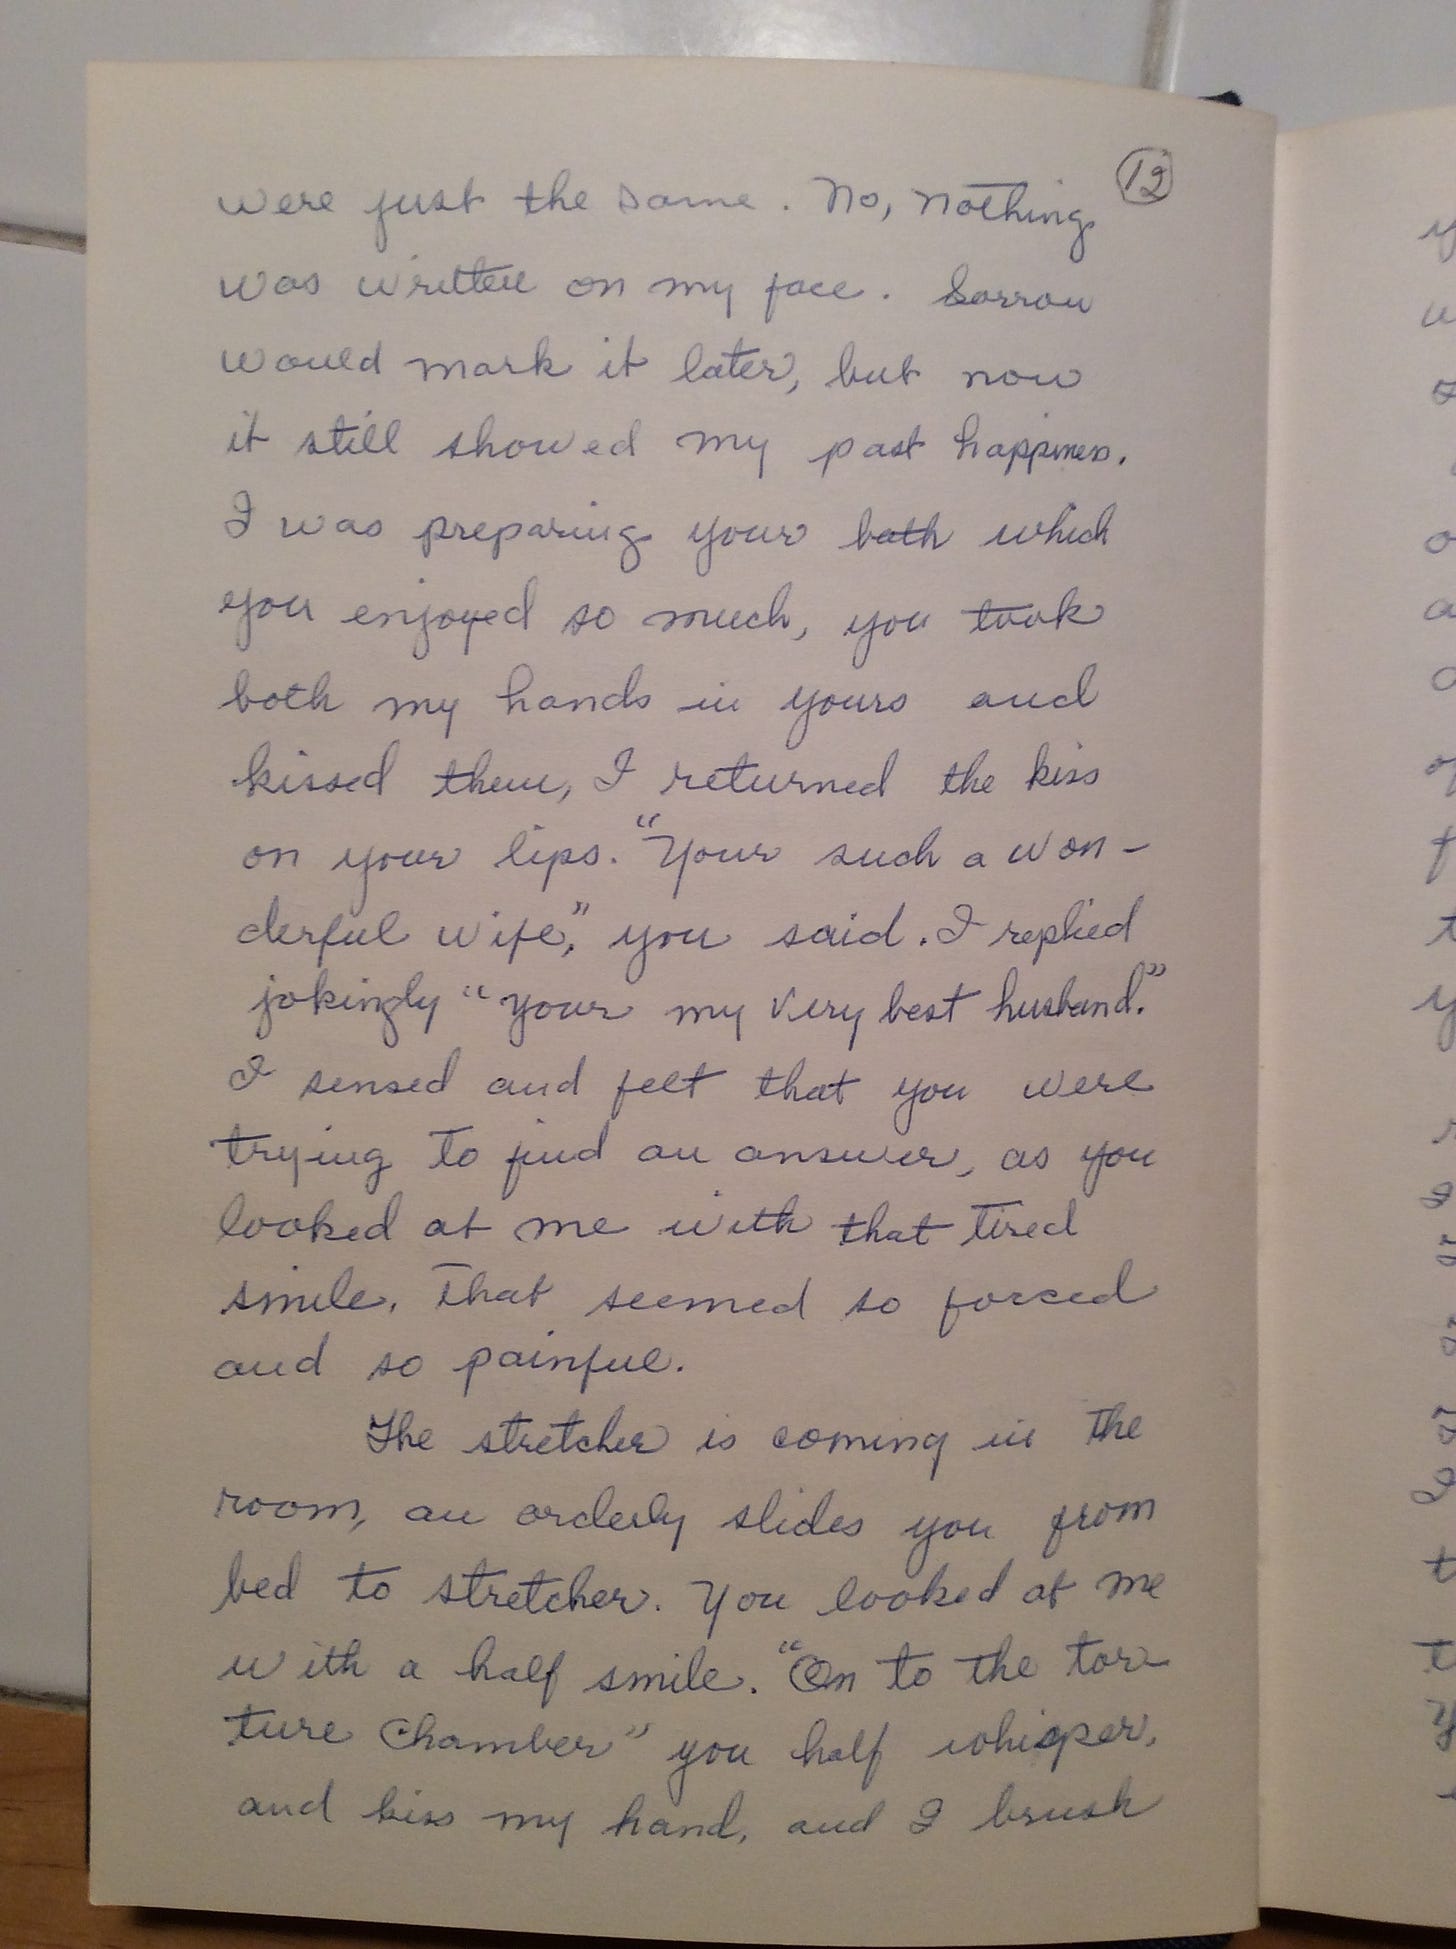 12
were just the same. No, nothing
was written on my face. Sorrow
would mark it later, but now
it still showed my past happiness.
I was preparing your bath which
you enjoyed so much, you took
both my hands in yours and
kissed them, I returned the kiss
on your lips. "Your such a won-
derful wife," you said. I replied
jokingly "your my very best husband."
I sensed and felt that you were
trying to find an answer, as you
looked at me with that tired
smile. That seemed so forced
and so painful.
The stretcher is coming in the
room, an orderly slides you from
bed to stretcher. You looked at me
with a half smile. "On to the tor-
ture chamber" you half whisper,
and kiss my hand, and I brush